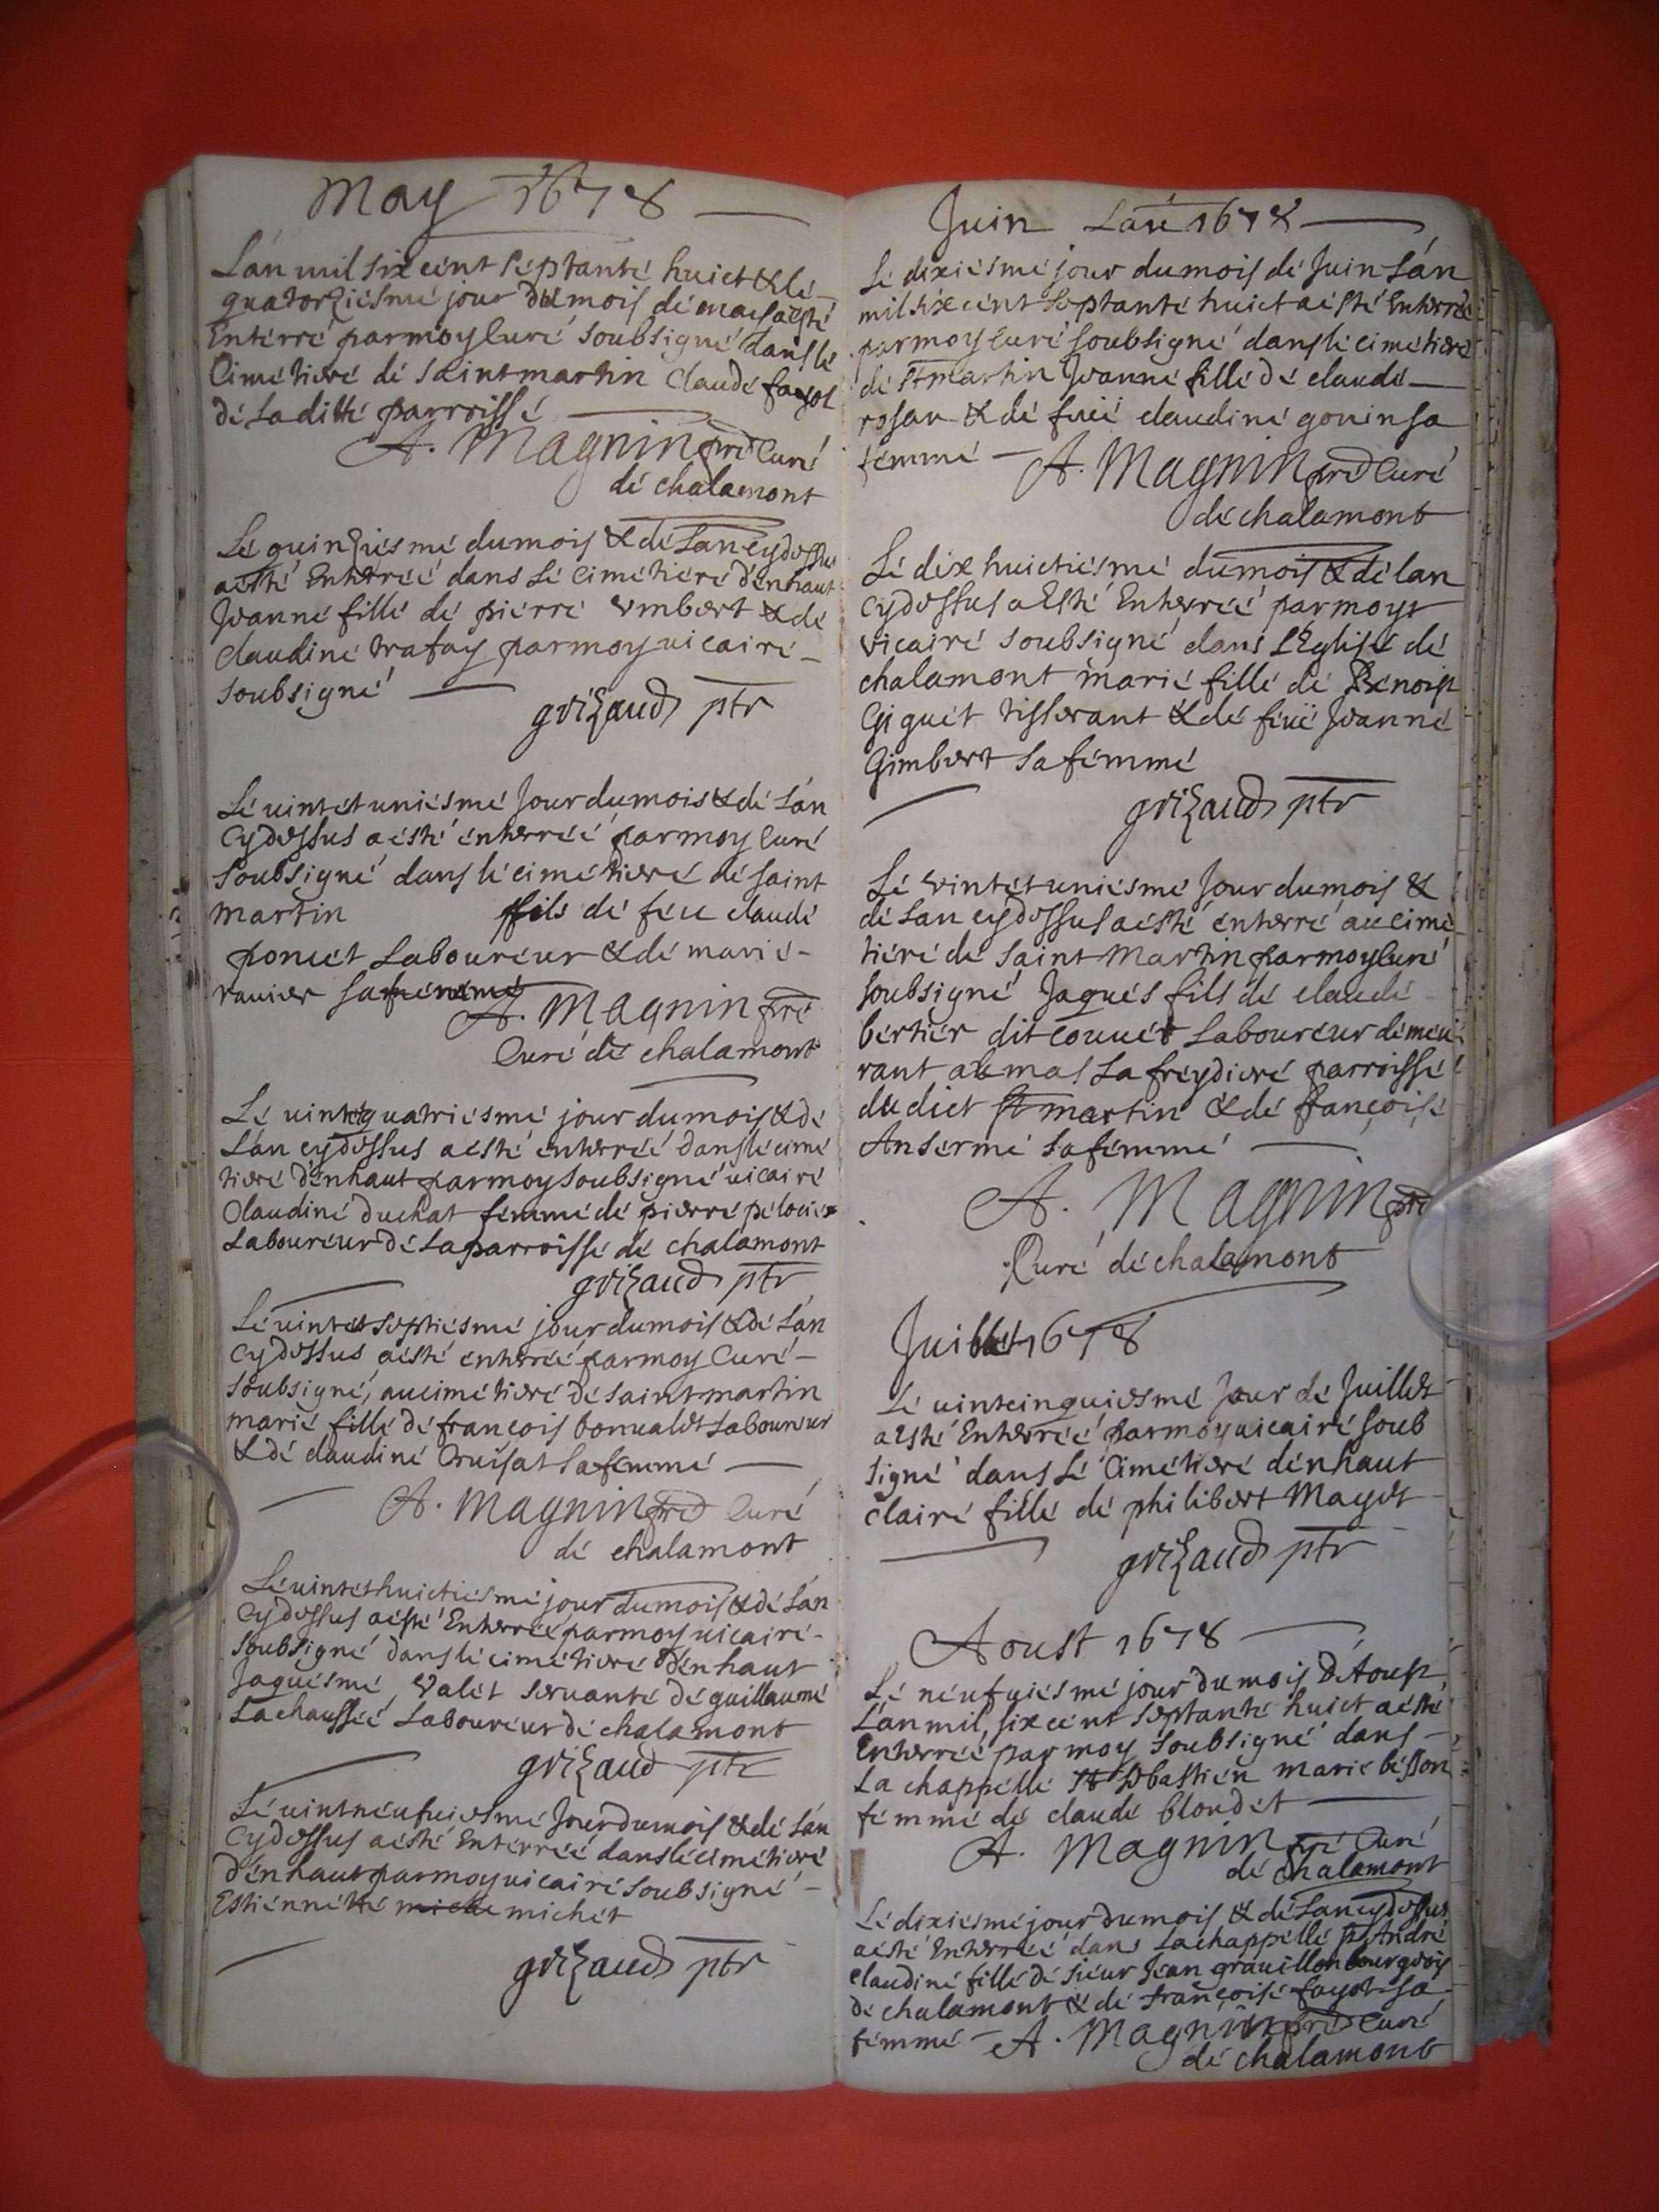 May 1678
L'an mil six cent septante huict & le
quatorziesme jour du mois de may a esté
Enterré par moy Curé soubsigné dans le
Cimetiere de saint martin Claude fayol
de laditte parroisse
A. Magnin pre Curé
de chalamont
Le quinziesme du mois & de l'an cydessus
a esté Enterreé dans le Cimetiere d'enhaut
Jeanne fille de pierre Umbert & de
Claudine trafay par moy vicaire
soubsigné
grizaud ptr
Le vint et uniesme Jour du mois & de l'an
Cydessus a esté enterreé par moy Curé
soubsigné dans le cimetiere de saint
martin fils de feu claude
poncet Laboureur & de marie
ravier sa femme
A. Magnin pre
Curé de chalamont
Le vintequatriesme jour du mois & de
L'an cydessus a esté enterreé dans le cime
tiere d'enhaut par moy soubsigné vicaire
Claudine duchat femme de pierre pelocier
Laboureur de La parroisse de chalamont
grizaud ptr
Le vintetseptiesme jour du mois & de L'an
Cydessus a esté enterreé par moy Curé
soubsigné, au cimetiere de saint martin
marie fille de francois bonvalet Laboureur
& de claudine Cruisat sa femme
A. Magnin pre Curé
de chalamont
Le vintethuictiesme jour du mois & de L'an
Cydessus a esté Enterreé par moy vicaire
soubsigné dans le cimetiere d'enhaut
Jaquesme Valet servante de guillaume
La chausseé Laboureur de chalamont
grizaud ptr
Le vintneufviesme Jour du mois & de L'an
Cydessus a esté Enterreé dans le cimetiere
d'enhaut par moy vicaire soubsigné
Estiennette miche michet
grizaud ptr
Juin L'an 1678
Le dixiesme jour du mois de Juin L'an
mil six cent septante huict a esté Enterreé
par moy Curé soubsigné dans le cimetiere
de st martin Jeanne fille de claude
rosan & de fuië claudine gouin sa
femme
A. Magnin pre Curé
de chalamont
Le dix huictiesme du mois & de lan
Cydessus a Esté Enterreé par moy
vicaire soubsigné dans L'Eglise de
chalamont marie fille de Benoist
Giguet tisserant & de feuë Jeanne
Gimbert sa femme
grizaud ptr
Le vint et uniesme Jour du mois &
de L'an cydessus a esté enterré au cime
tiere de saint Martin par moy Curé
soubsigné Jaques fils de claude
bertier dit couuet Laboureur demeu
rant au mas La freydiere parroisse
du dict st martin & de francoise
Anserme sa femme
A. Magnin pre
Curé de chalamont
Juillet 1678
Le vintcinquiesme Jour de Juillet
a esté Enterreé par moy vicaire soub
signé dans Le Cimetiere d'enhaut
Claire fille de philibert Mayet
grizaud ptr
Aoust 1678
Le neufviesme jour du mois D'Aoust
L'an mil, six cent septante huict a esté
Enterreé par moy soubsigné dans
La chappelle St sebastien marie besson
femme de claude blondet
A. Magnin pre Curé
de chalamont
Le dixiesme jour du mois & de L'an cydessus
a esté Enterreé dans La chappelle st André
claudine fille de sieur Jean gravillon bourgeois
de chalamont & de françoise fayot sa
femme A. Magnin pre Curé
de chalamont